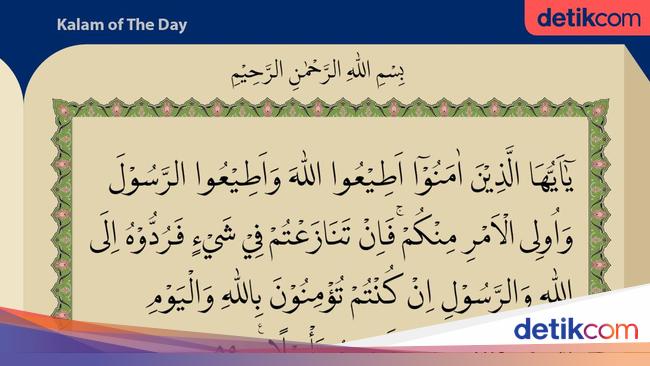 Kalam of The Day
detikcom
بِسْمِ اللّٰهِ الرَّحْمٰنِ الرَّحِيْمِ
يٰٓاَيُّهَا الَّذِيْنَ اٰمَنُوْٓا اَطِيْعُوا اللّٰهَ وَاَطِيْعُوا الرَّسُوْلَ
وَاُولِى الْاَمْرِ مِنْكُمْۚ فَاِنْ تَنَازَعْتُمْ فِيْ شَيْءٍ فَرُدُّوْهُ اِلَى
اللّٰهِ وَالرَّسُوْلِ اِنْ كُنْتُمْ تُؤْمِنُوْنَ بِاللّٰهِ وَالْيَوْمِ
detikcom